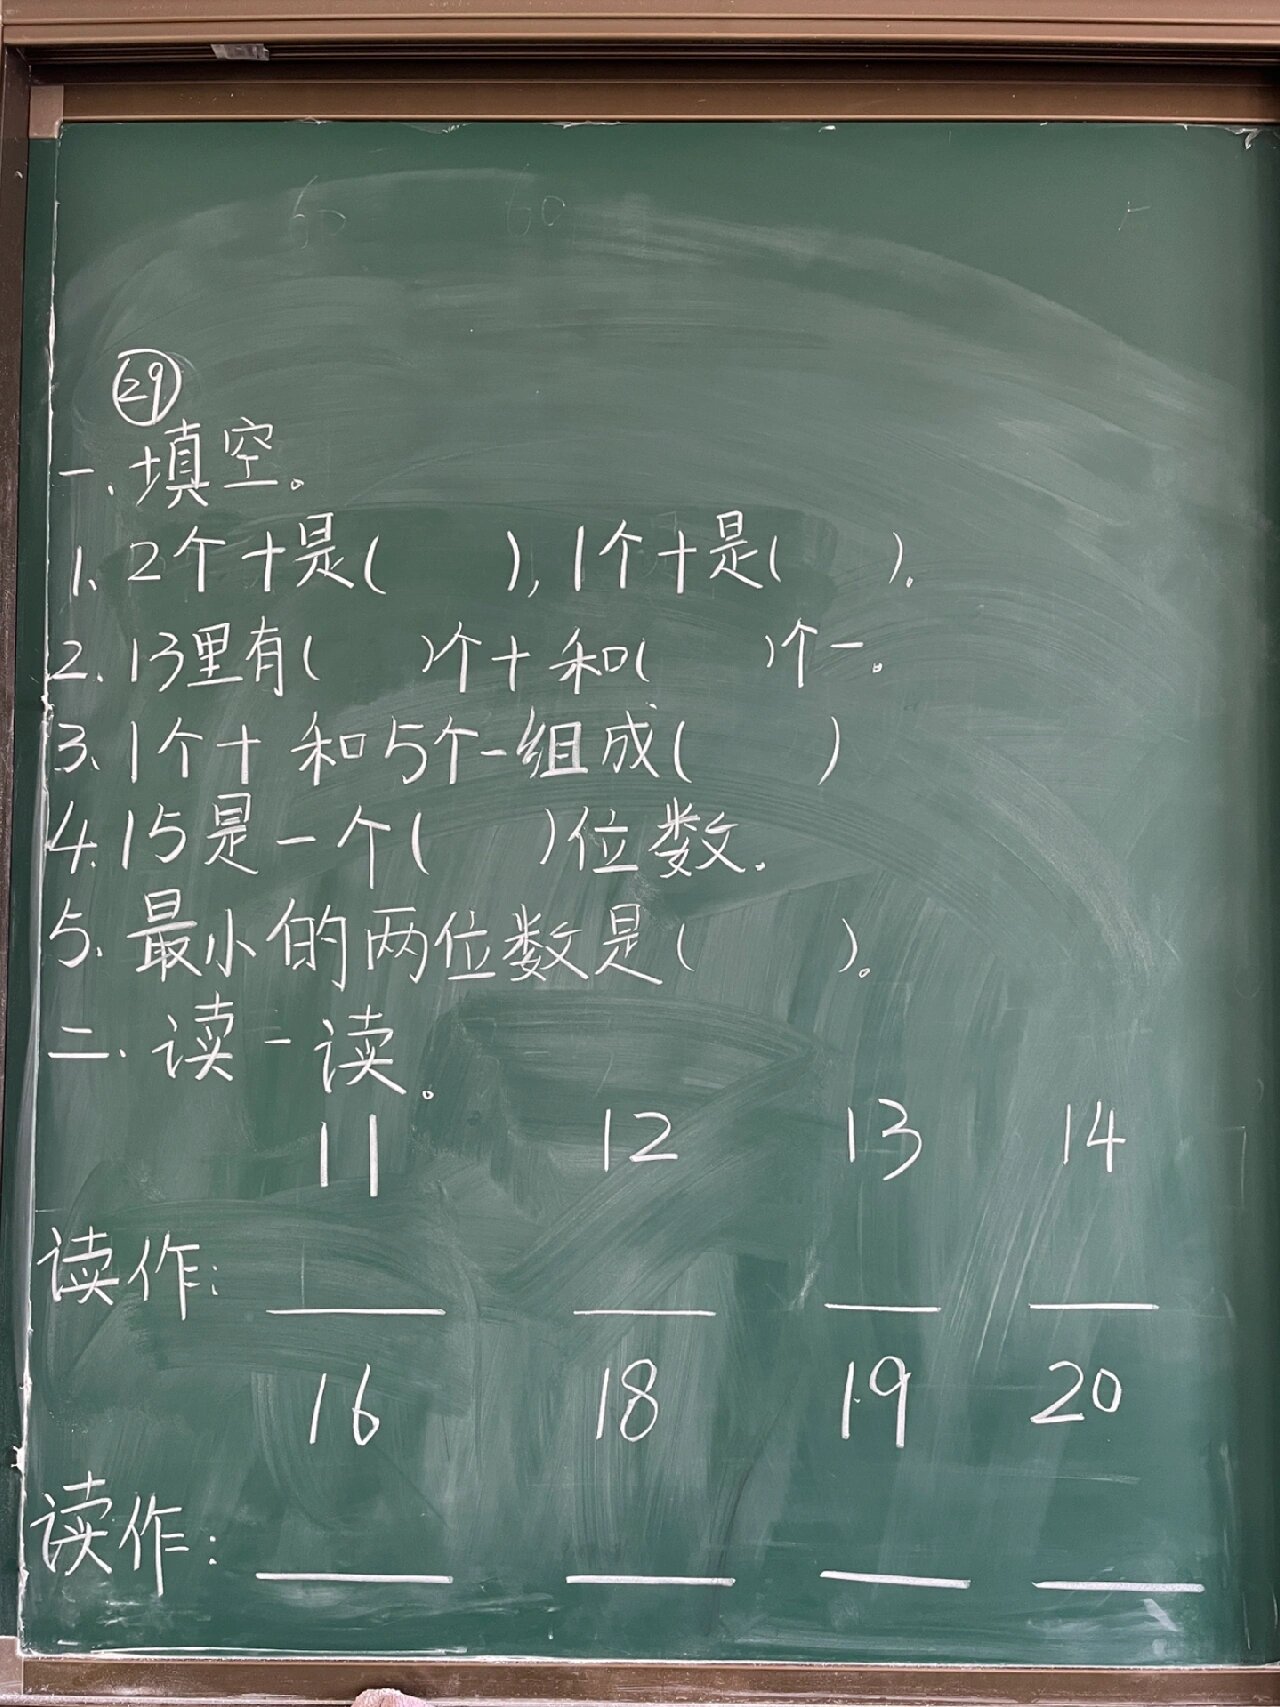 ㉙
一、填空。
1、2个十是(    ),1个十是(    )。
2、13里有(    )个十和(    )个一。
3、1个十和5个一组成(    )
4、15是一个(    )位数.
5、最小的两位数是(    )。
二、读一读。
11 12 13 14
读作: ____ ____ ____ ____
16 18 19 20
读作: ____ ____ ____ ____